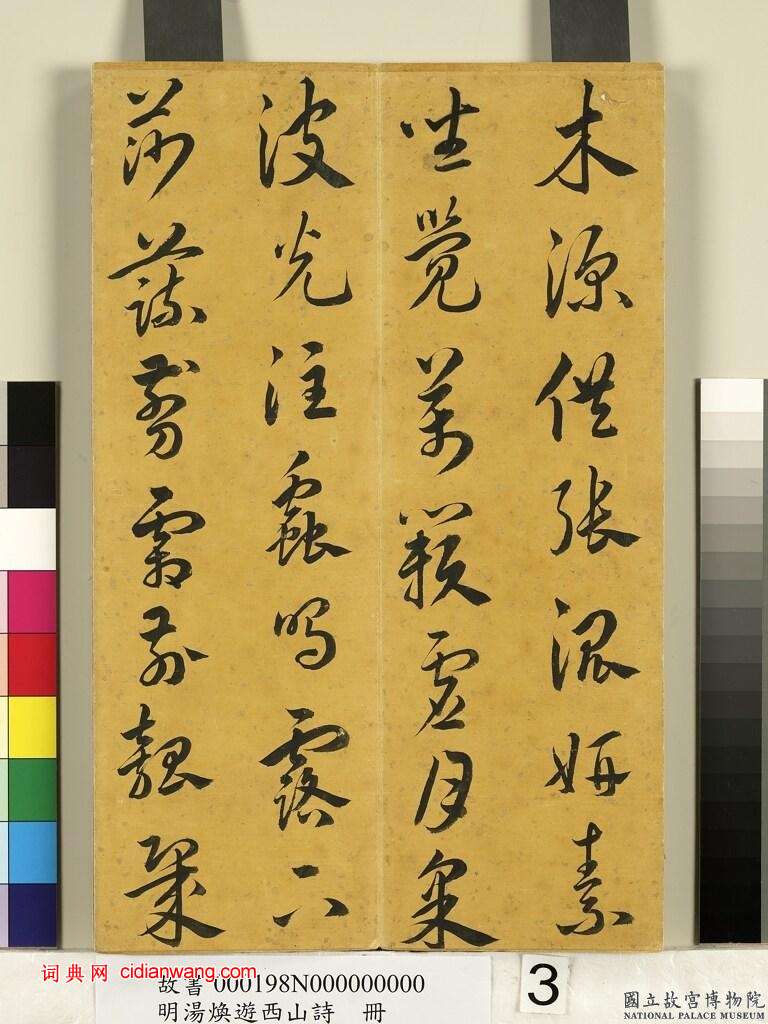 木源供張混妍素
坐覺萬籟虛月
波光注蟲鳴露下
莎蔬剪霜前瓠
词典网 cidianwang.com
故書 000198N000000000
明湯煥遊西山詩 冊
3
國立故宮博物院
NATIONAL PALACE MUSEUM